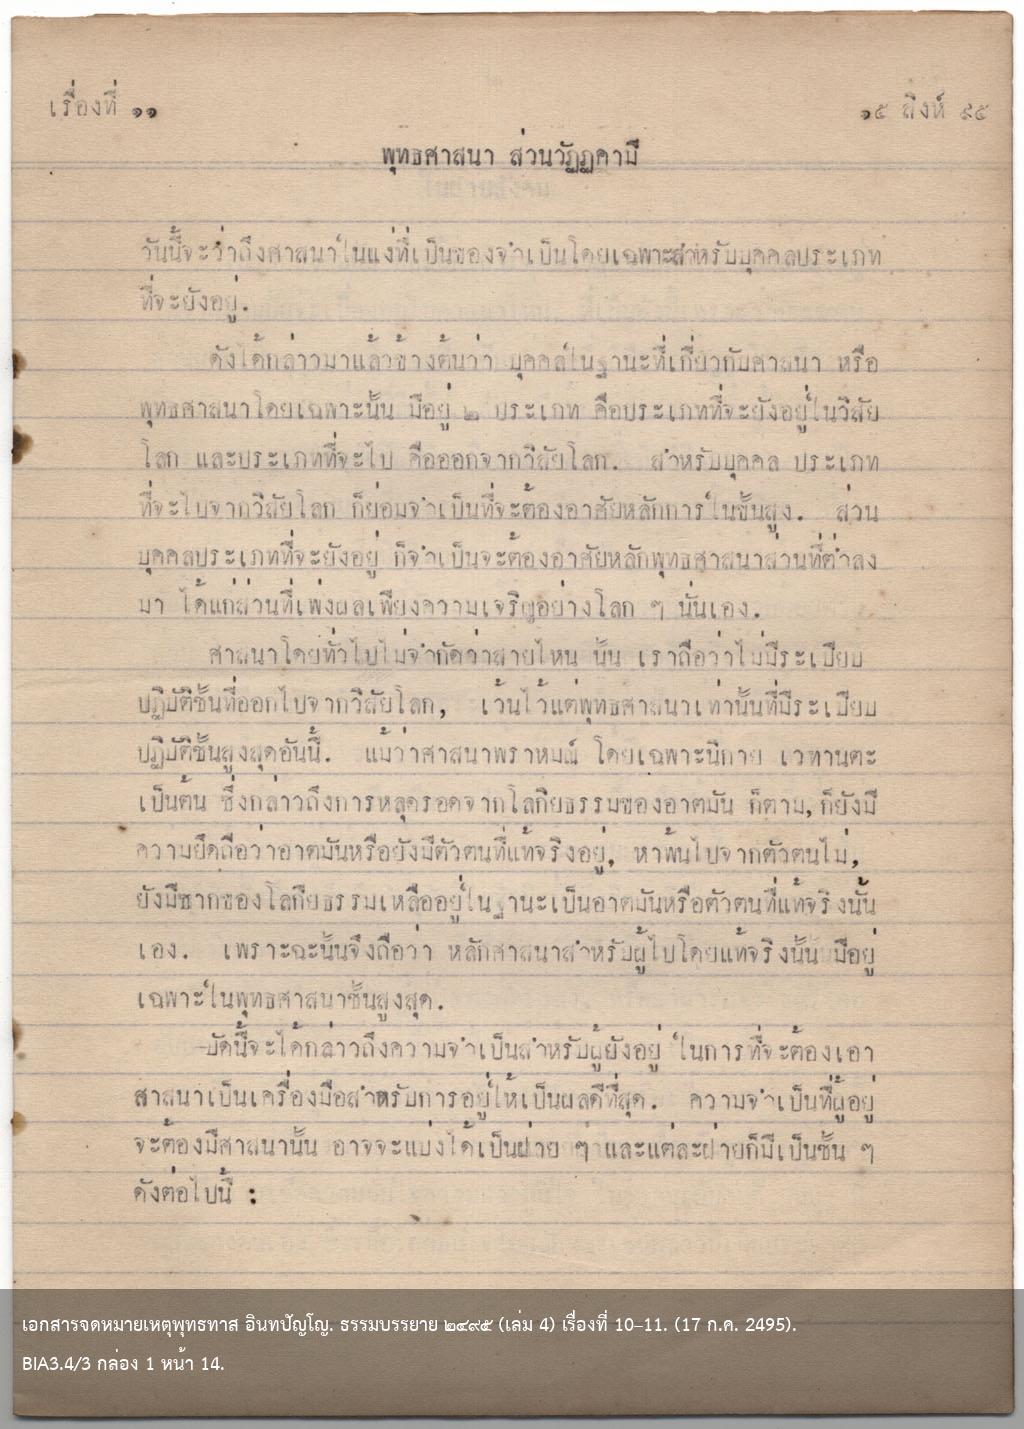 เรื่องที่ ๑๑
๑๕ สิงห์ ๙๕
พุทธศาสนา ส่วนวัฏฏคามี
วันนี้จะว่าถึงศาสนาในแง่ที่เป็นของจำเป็นโดยเฉพาะสำหรับบุคคลประเภท
ที่จะยังอยู่.
ดังได้กล่าวมาแล้วข้างต้นว่า บุคคลในฐานะที่เกี่ยวกับศาสนา หรือ
พุทธศาสนาโดยเฉพาะนั้น มีอยู่ ๒ ประเภท คือประเภทที่จะยังอยู่ในวิสัย
โลก และประเภทที่จะไป คือออกจากวิสัยโลก. สำหรับบุคคล ประเภท
ที่จะไปจากวิสัยโลก ก็ย่อมจำเป็นที่จะต้องอาศัยหลักการในชั้นสูง. ส่วน
บุคคลประเภทที่จะยังอยู่ ก็จำเป็นจะต้องอาศัยหลักพุทธศาสนาส่วนที่ต่ำลง
มา ได้แก่ส่วนที่เพ่งผลเพียงความเจริญอย่างโลก ๆ นั่นเอง.
ศาสนาโดยทั่วไปไม่จำกัดว่าสายไหน นั้น เราถือว่าไม่มีระเบียบ
ปฏิบัติชั้นที่ออกไปจากวิสัยโลก, เว้นไว้แต่พุทธศาสนาเท่านั้นที่มีระเบียบ
ปฏิบัติชั้นสูงสุดอันนี้. แม้ว่าศาสนาพราหมณ์ โดยเฉพาะนิกาย เวทานตะ
เป็นต้น ซึ่งกล่าวถึงการหลุดรอดจากโลกียธรรมของอาตมัน ก็ตาม, ก็ยังมี
ความยึดถือว่าอาตมันหรือยังมีตัวตนที่แท้จริงอยู่, หาพ้นไปจากตัวตนไม่,
ยังมีซากของโลกียธรรมเหลืออยู่ในฐานะเป็นอาตมันหรือตัวตนที่แท้จริงนั้น
เอง. เพราะฉะนั้นจึงถือว่า หลักศาสนาสำหรับผู้ไปโดยแท้จริงนั้น มีอยู่
เฉพาะในพุทธศาสนาชั้นสูงสุด.
บัดนี้จะได้กล่าวถึงความจำเป็นสำหรับผู้ยังอยู่ ในการที่จะต้องเอา
ศาสนาเป็นเครื่องมือสำหรับการอยู่ให้เป็นผลดีที่สุด. ความจำเป็นที่ผู้อยู่
จะต้องมีศาสนานั้น อาจจะแบ่งได้เป็นฝ่าย ๆ และแต่ละฝ่ายก็มีเป็นชั้น ๆ
ดังต่อไปนี้ :
เอกสารจดหมายเหตุพุทธทาส อินทปัญโญ. ธรรมบรรยาย ๒๔๙๕ (เล่ม 4) เรื่องที่ 10–11. (17 ก.ค. 2495).
BIA3.4/3 กล่อง 1 หน้า 14.